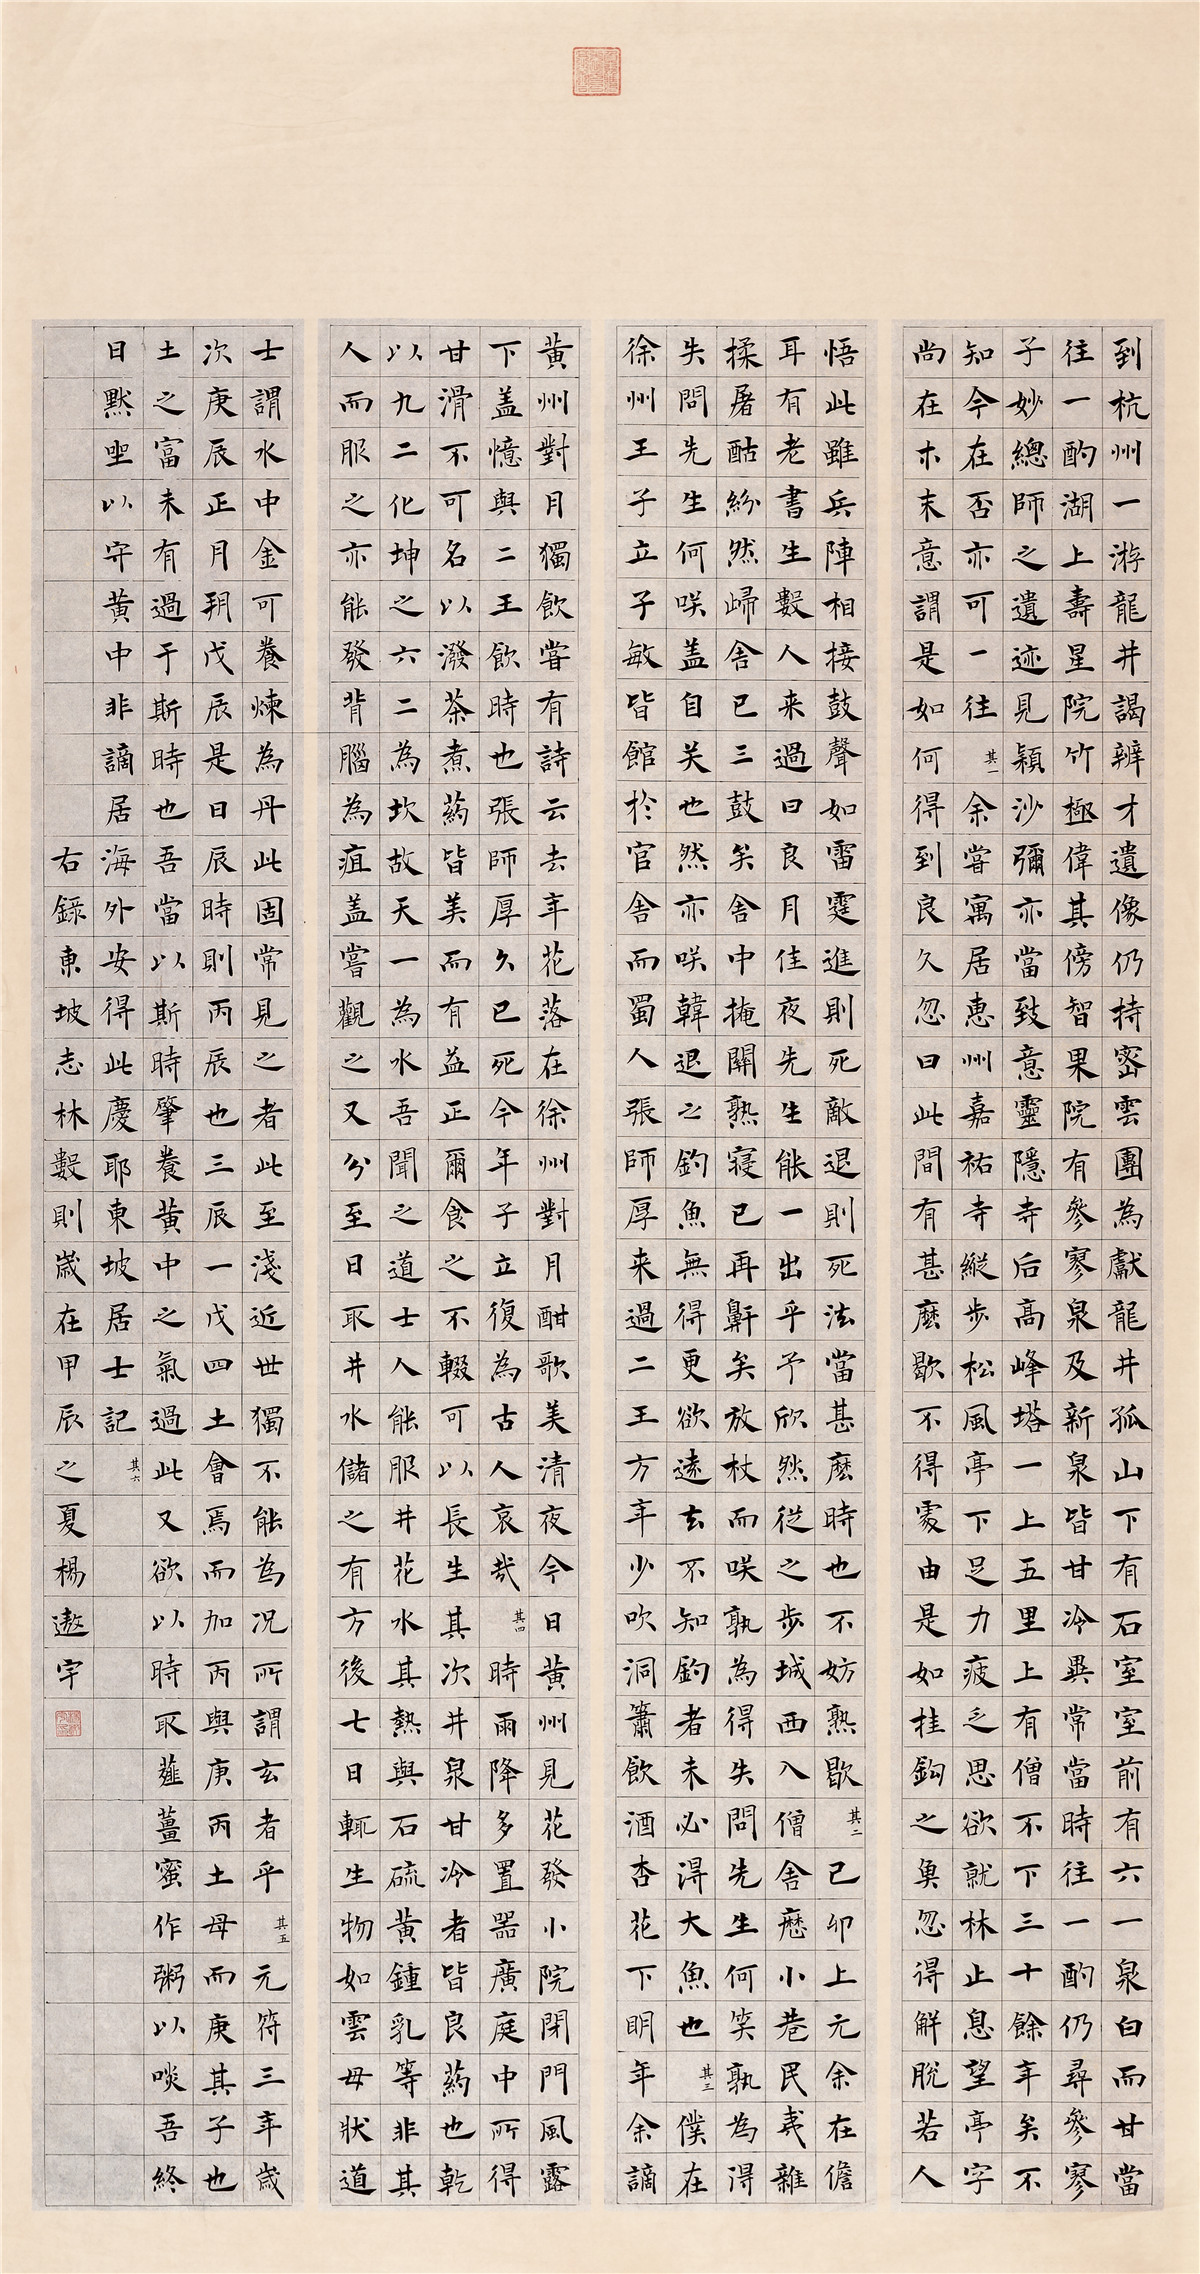 到杭州一游龍井謁辨才遺像仍持密雲團為獻龍井孤山下有石室室前有六一泉白而甘當
往一酌湖上壽星院竹極偉其傍智果院有參寥泉及新泉皆甘冷異常當時往一酌仍尋參寥
子妙總師之遺迹見穎沙彌亦當致意靈隱寺后高峰塔一上五里上有僧不下三十餘年矣不
知今在否亦可一往其一余嘗寓居惠州嘉祐寺縱步松風亭下足力疲乏思欲就林止息望亭宇
尚在木末意謂是如何得到良久忽曰此間有甚麽歇不得處由是如挂鈎之魚忽得解脫若人
悟此雖兵陣相接鼓聲如雷霆進則死敵退則死法當甚麽時也不妨熟歇其二己卯上元余在儋
耳有老書生數人来過曰良月佳夜先生能一出乎予欣然從之步城西入僧舍歷小巷民夷雜
揉屠酤紛然歸舍已三鼓矣舍中掩關熟寢已再鼾矣放杖而咲孰為得失問先生何笑孰為得
失問先生何咲盖自关也然亦咲韓退之釣魚無得更欲遠去不知釣者未必淂大魚也其三僕在
徐州王子立子敏皆館於官舍而蜀人張師厚来過二王方年少吹洞簫飲酒杏花下明年余謫
黃州對月獨飲嘗有詩云去年花落在徐州對月酣歌美清夜今日黃州見花發小院閉門風露
下盖憶與二王飲時也張師厚久已死今年子立復為古人哀哉其四時雨降多置器廣庭中所得
甘滑不可名以潑茶煮藥皆美而有益正爾食之不輟可以長生其次井泉甘冷者皆良藥也乾
以九二化坤之六二為坎故天一為水吾聞之道士人能服井花水其熱與石硫黃鍾乳等非其
人而服之亦能發背腦為疽盖嘗觀之又分至日取井水儲之有方後七日輒生物如雲母狀道
士謂水中金可養煉為丹此固常見之者此至淺近世獨不能為况所謂玄者乎其五元符三年歲
次庚辰正月朔戊辰是日辰時則丙辰也三辰一戊四土會焉而加丙與庚丙土母而庚其子也
土之富未有過于斯時也吾當以斯時肇養黃中之氣過此又欲以時取薤薑蜜作粥以啖吾終
日默坐以守黃中非謫居海外安得此慶耶東坡居士記其六
右錄東坡志林數則歲在甲辰之夏楊遨宇